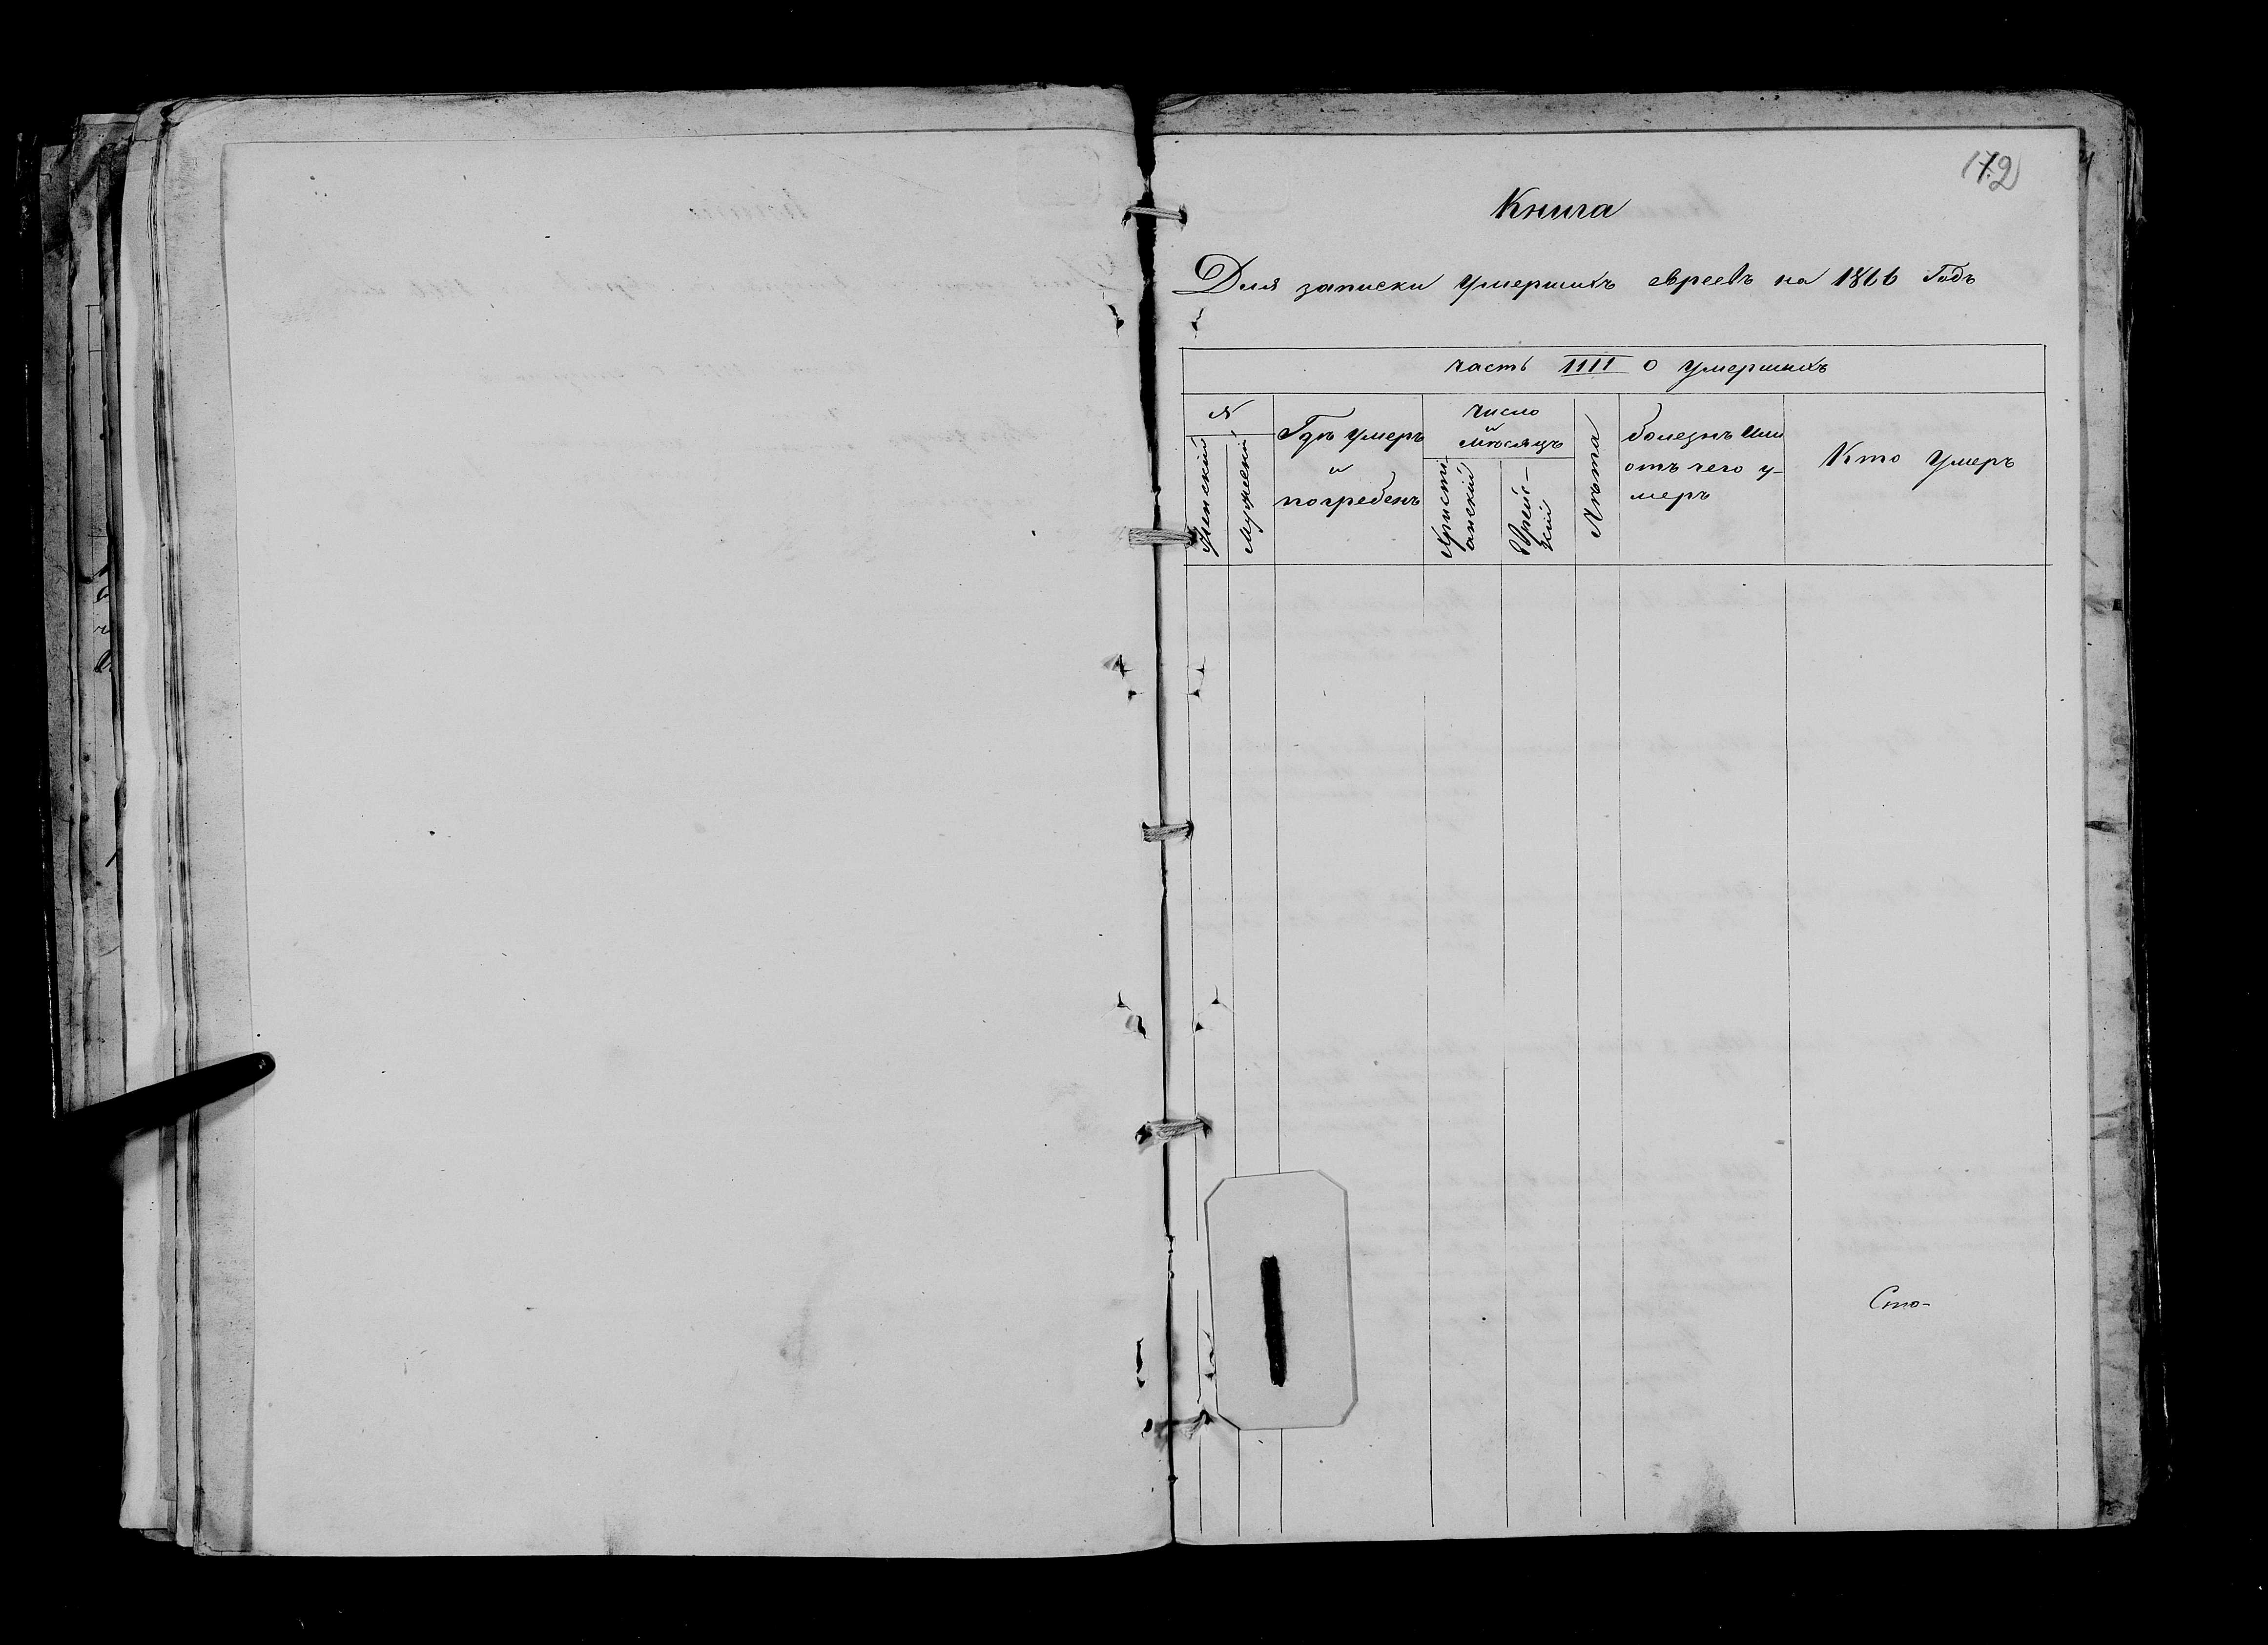 172
Книга
Для записки умершихъ евреевъ на 1866 Годъ
часть IIII о умершихъ
№
Женскій
Мужескій
Гдѣ умеръ
и
погребенъ
число
и
мѣсяцъ
Христі-
анскій
Еврей-
скій
Лѣта
болезнь или
отъ чего у-
меръ
Кто умеръ
Сто-